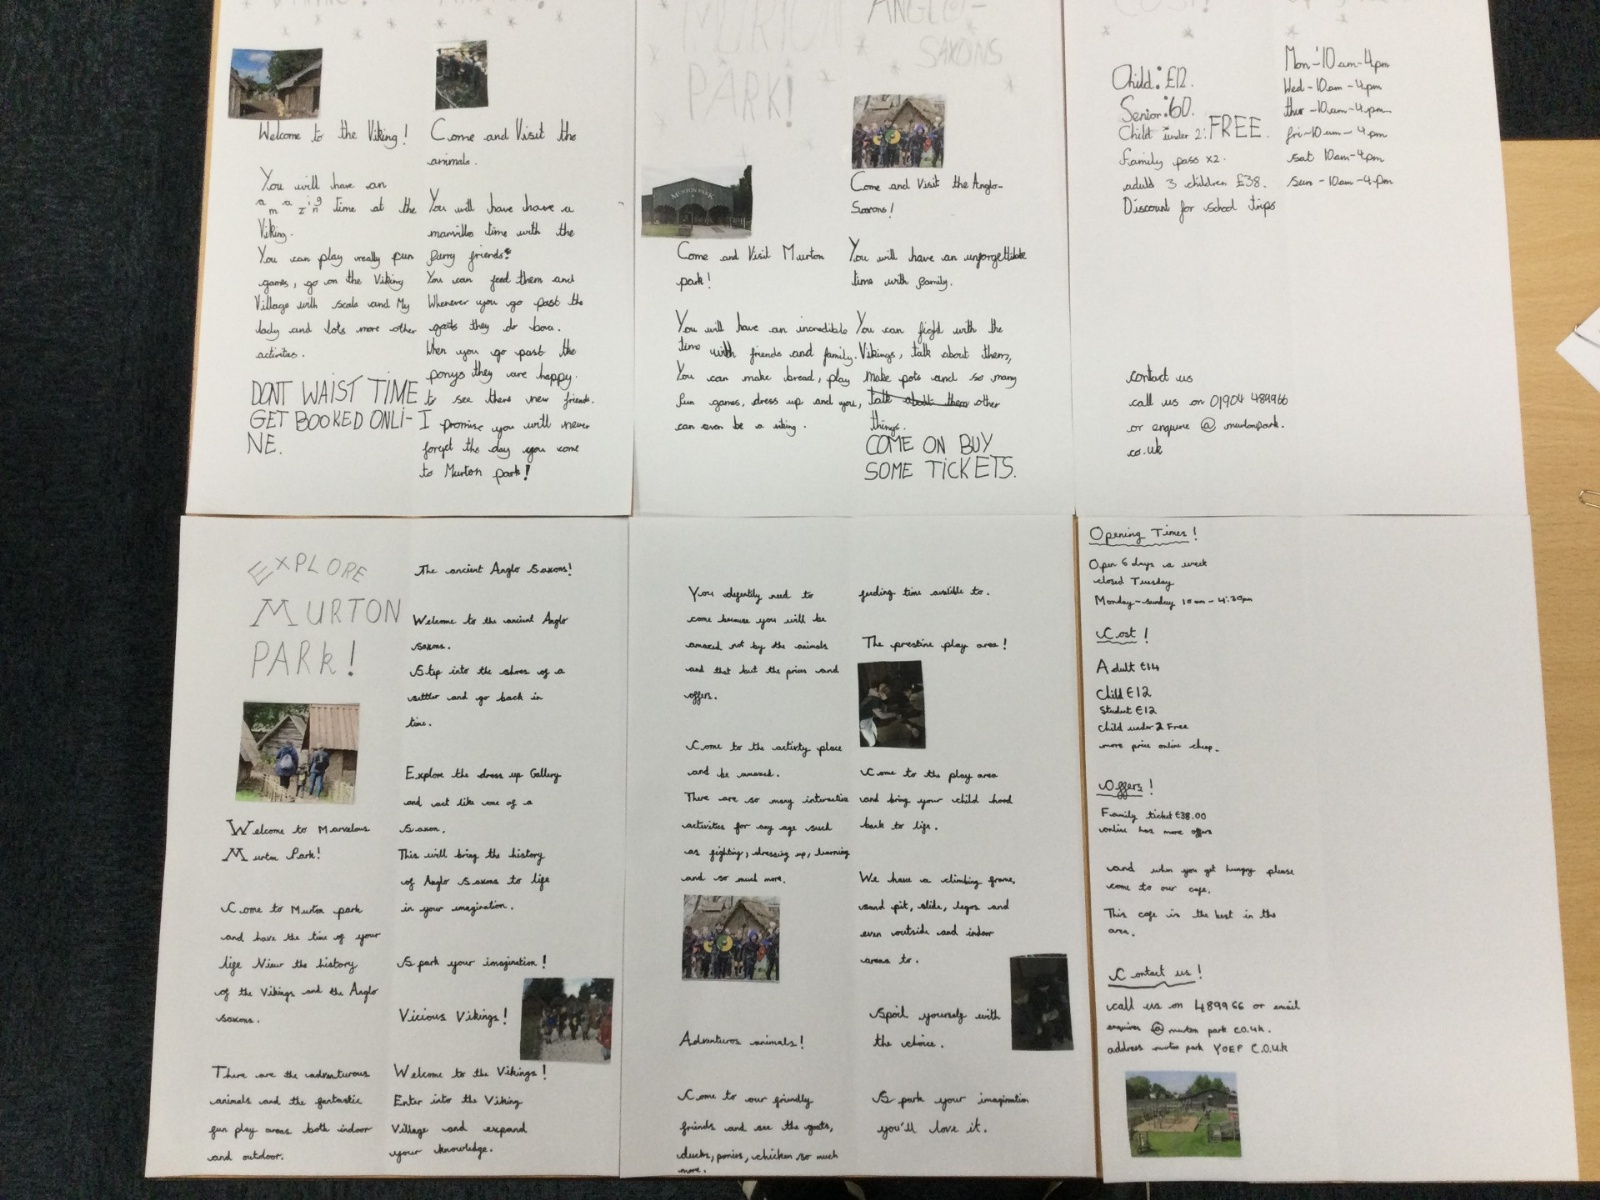 MURTON
PARK!
ANGLO-
SAXONS
COST!
Welcome to the Viking!
You will have an
amazing time at the
Viking.
You can play really fun
games, go on the Viking
Village with scala and My
lady and lots more other
activities.
DONT WAIST TIME
GET BOOKED ONLI-
NE.
Come and Visit the
animals.
You will have have a
marvillo time with the
furry friends!
You can feed them and
Whenever you go past the
goats they do baa.
When you go past the
ponys they are happy.
to see there new friends.
I promise you will never
forget the day you come
to Murton park!
MURTON PARK
Come and Visit Murton
park!
You will have an incredible
time with friends and family.
You can make bread, play
fun games, dress up and you,
can even be a viking.
Come and Visit the Anglo-
Saxons!
You will have an unforgettible
time with family.
You can fight with the
Vikings, talk about them,
make pots and so many
talk about them other
things.
COME ON BUY
SOME TICKETS.
Child: £12.
Senior: 60.
Child under 2: FREE.
Family pass x2.
adult 3 children £38.
Discount for school trips
Mon-10am-4pm
Wed-10am-4pm
thur-10am-4pm
fri-10am-4pm
sat 10am-4pm
sun-10am-4pm
contact us
call us on 01904 489966
or enquire @ murtonpark.
co.uk
EXPLORE
MURTON
PARK!
Welcome to Marvelous
Murton Park!
Come to Murton park
and have the time of your
life View the history
of the Vikings and the Anglo
saxons.
There are the adventurous
animals and the fantastic
fun play areas both indoor
and outdoor.
The ancient Anglo Saxons!
Welcome to the ancient Anglo
saxons.
Step into the shoes of a
settler and go back in
time.
Explore the dress up Gallery
and act like one of a
Saxon.
This will bring the history
of Anglo Saxons to life
in your imagination.
Spark your imagination!
Vicious Vikings!
Welcome to the Vikings!
Enter into the Viking
Village and expand
your knowledge.
You defently need to
come because you will be
amazed not by the animals
and that but the prices and
offers.
Come to the activty place
and be amazed.
There are so many interactive
activities for any age such
as fighting, dressing up, learning
and so much more.
Adventuros animals!
Come to our friendly
friends and see the goats,
ducks, ponies, chicken so much
more.
feeding time availible to.
The prestine play area!
Come to the play area
and bring your child hood
back to life.
We have a climbing frame,
sand pit, slide, legos and
even outside and indoor
arena to.
Spoil yourself with
the choice.
Spark your imagination
you'll love it.
Opening Times!
Open 6 days a week
closed Tuesday
Monday-sunday 10am-4:30pm
Cost!
Adult £14
Child £12
Student £12
child under 2 Free
more price online cheap.
Offers!
Family ticket £38.00
online has more offers
and when you get hungry please
come to our cafe.
This cafe is the best in the
area.
Contact us!
call us on 489966 or email
enquires @ murton park co.uk.
address murton park YOEP C.O.U.K